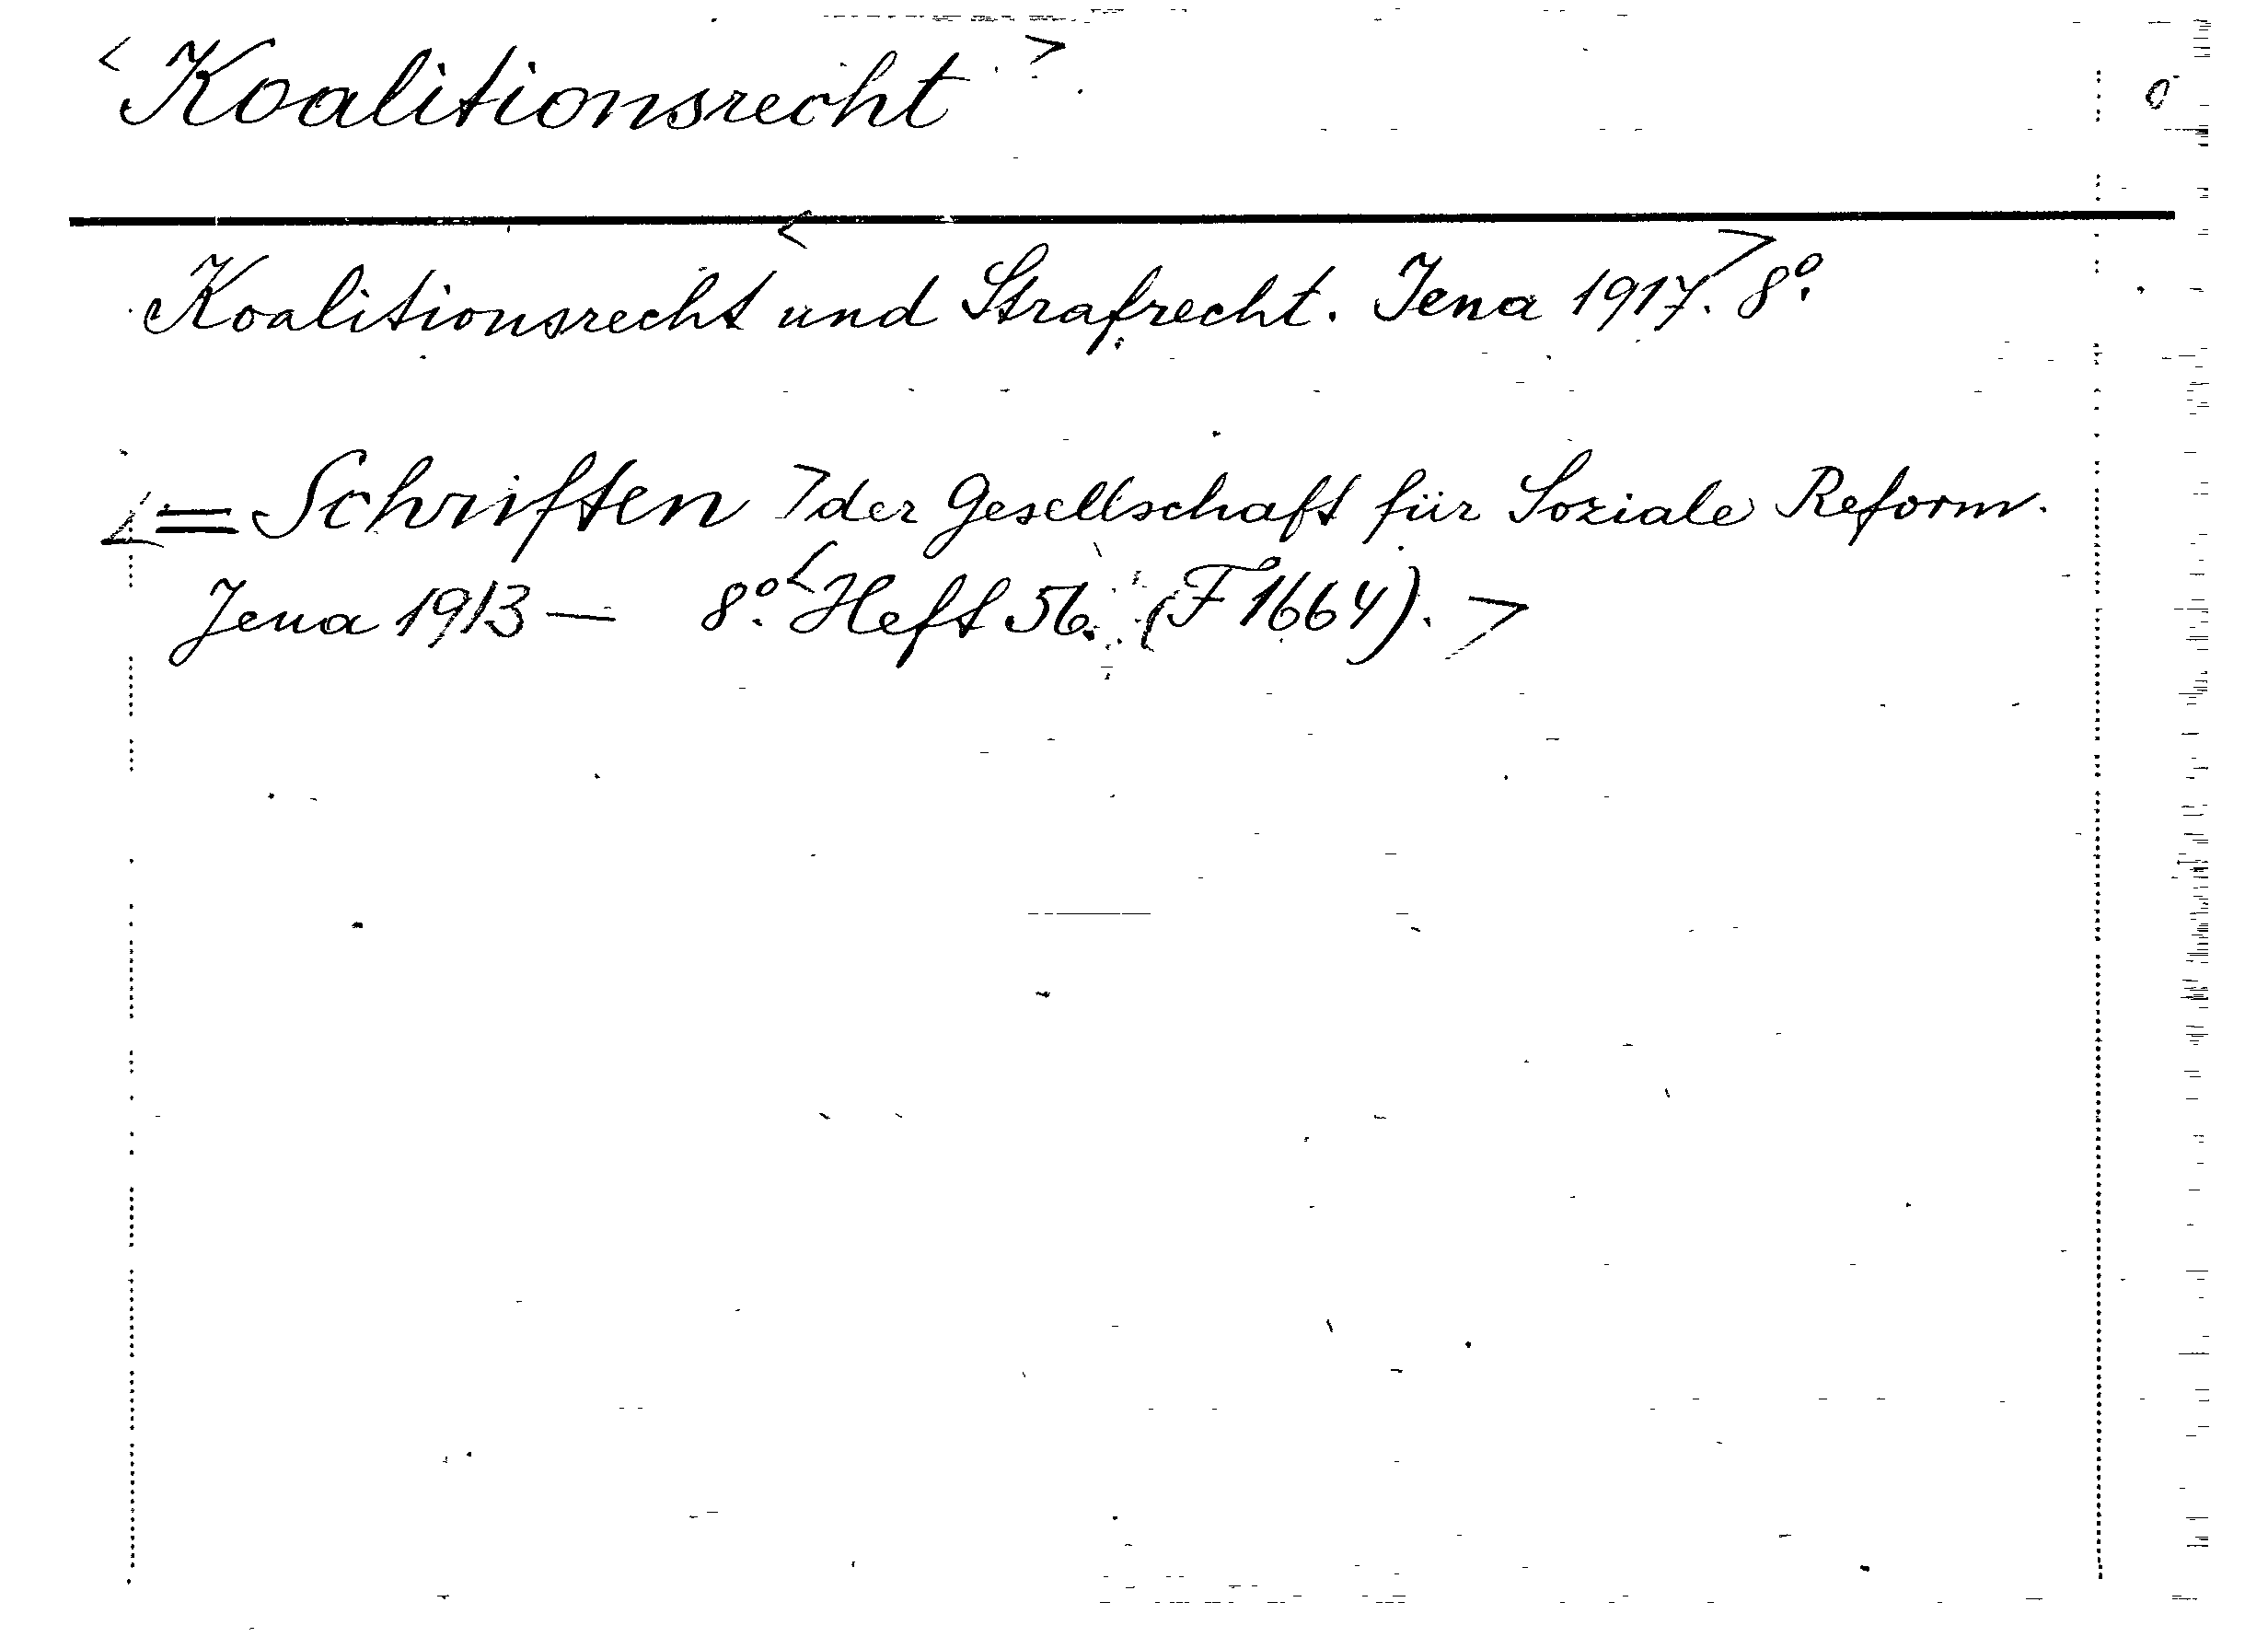 < Koalitionsrecht >
Koalitionsrecht < und Strafrecht. Jena 1917. > 8°.
< = Schriften > der Gesellschaft für Soziale Reform.
Jena 1913 — 8°. < Heft 56. (F 1664). >